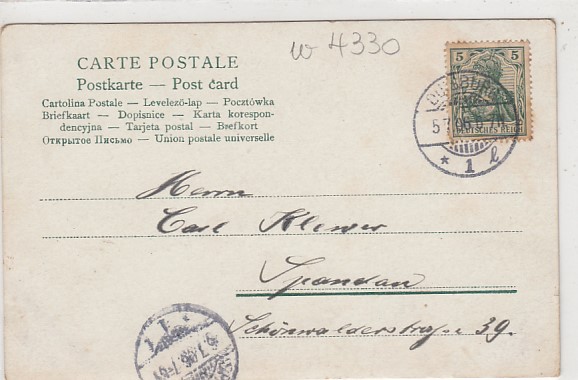 w 4330
CARTE POSTALE
Postkarte — Post card
Cartolina Postale — Levelező-lap — Pocztówka
Briefkaart — Dopisnice — Karta korespon-
dencyjna — Tarjeta postal — Brefkort
Открытое Письмо — Union postale universelle
5 5
DEUTSCHES REICH
* 1 l
Herrn
Carl Klewer
Spandau
Schönwalderstraße 39.